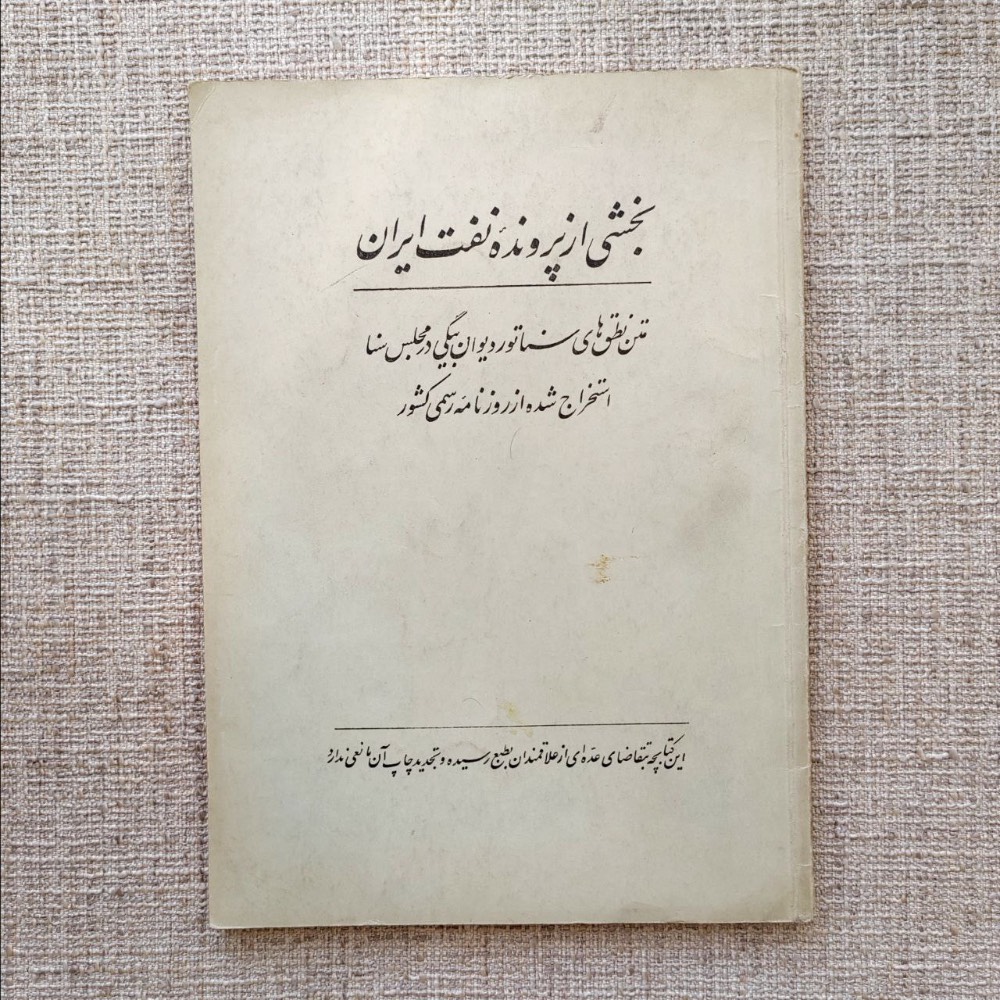 بخشی از پروندهٔ نفت ایران
متن نطق‌های سناتور دیوان بیگی در مجلس سنا
استخراج شده از روزنامه رسمی کشور
این کتابچه بتقاضای عدّه‌ای از علاقمندان بطبع رسیده و تجدید چاپ آن مانعی ندارد